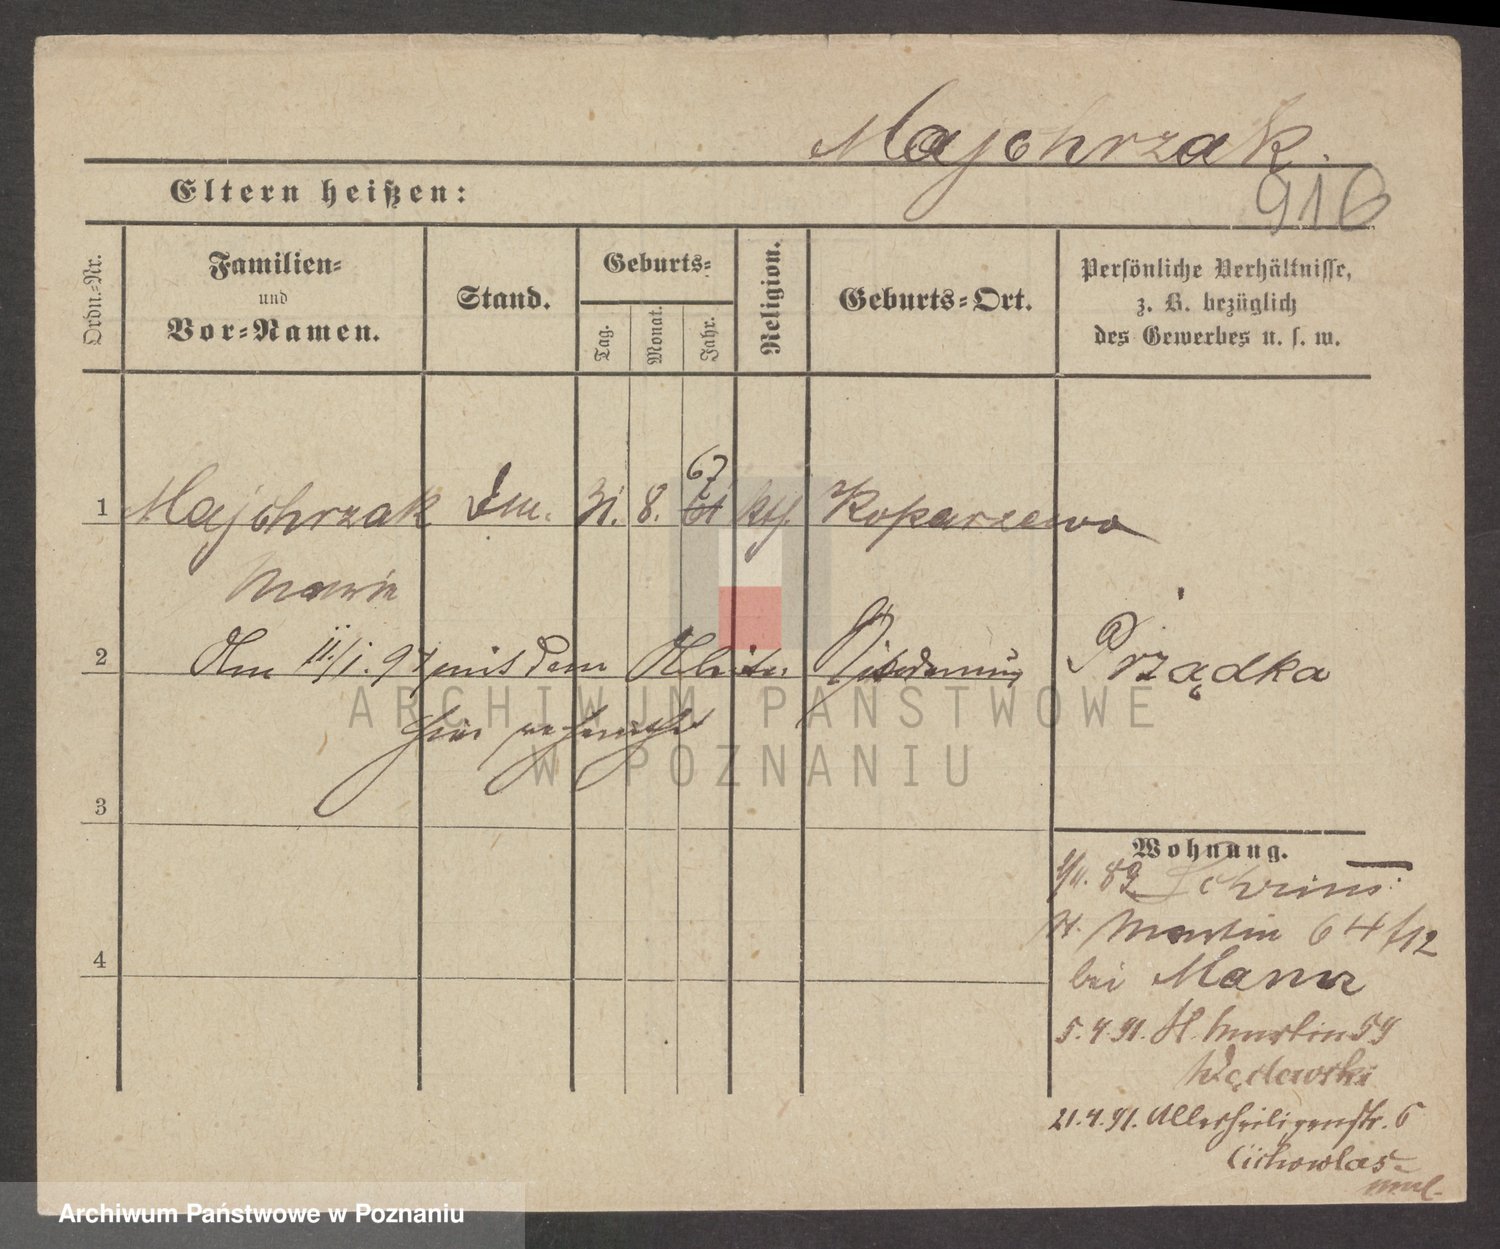 Majchrzak.
Eltern heißen:
916
Ordn.-Nr.
Familien-
und
Vor-Namen.
Stand.
Geburts-
Tag.
Monat.
Jahr.
Religion.
Geburts-Ort.
Persönliche Verhältnisse,
z. B. bezüglich
des Gewerbes u. s. w.
67
1 Majchrzak 31. 8. 61 kth. Koparzewo
Maria
2 Am 11/1. 97 mit dem Arbeiter Prządka
hier
3
Wohnung.
89
St. Martin 64/12
bei
5.4.91. St. Martin 59
21.4.91. Allerheiligenstr. 6
4
ARCHIWUM PAŃSTWOWE
W POZNANIU
Archiwum Państwowe w Poznaniu